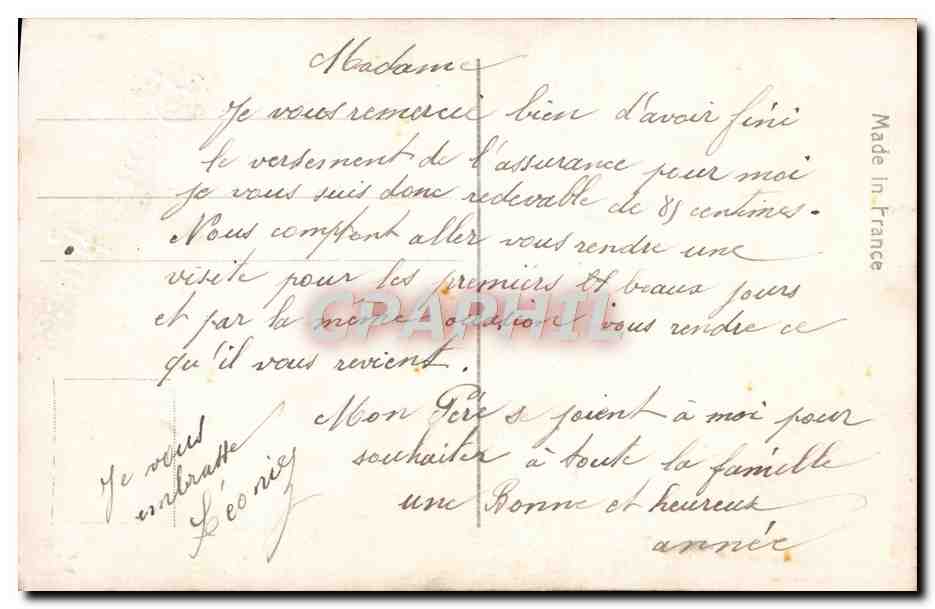 Madame
Je vous remercie bien d'avoir fini
le versement de l'assurance pour moi
je vous suis donc redevable de 85 centimes.
Nous comptont aller vous rendre une
visite pour les premiers beaux jours
et par la même occasion vous rendre ce
qu'il vous revient.
Mon Père s joient à moi pour
souhaiter à toute la famille
une Bonne et heureux
année
Je vous
embrasse
Léonie
Made in France
CPAPHIL